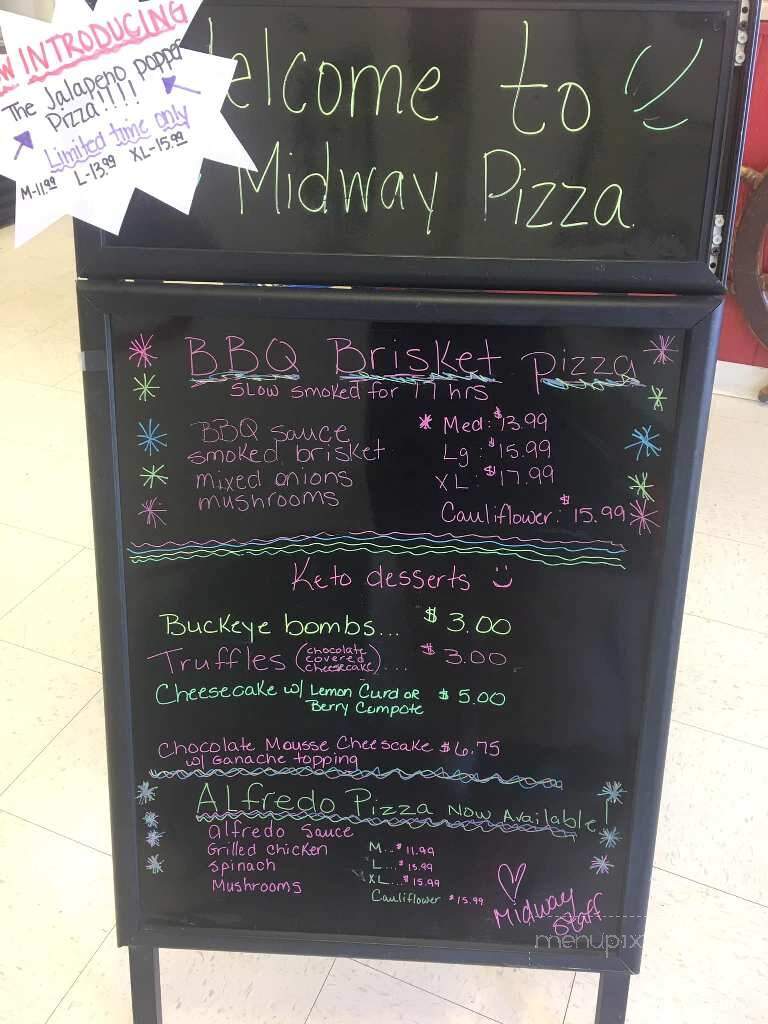 INTRODUCING
The Jalapeno popper
Pizza!!!!
Limited time only
M-11.99 L-13.99 XL-15.99
elcome to
Midway Pizza
BBQ Brisket Pizza
Slow smoked for 17 hrs
BBQ sauce
smoked brisket
mixed onions
mushrooms
Med: $13.99
Lg: $15.99
XL: $17.99
Cauliflower: $15.99
Keto desserts
Buckeye bombs... $3.00
Truffles (chocolate covered cheesecake)... $3.00
Cheesecake w/ Lemon Curd or $5.00
Berry Compote
Chocolate Mousse Cheescake $6.75
w/ Ganache topping
Alfredo Pizza Now Available!
alfredo sauce
Grilled chicken
spinach
Mushrooms
M...$11.99
L...$13.99
XL...$15.99
Cauliflower $15.99
Midway
Staff
menupix